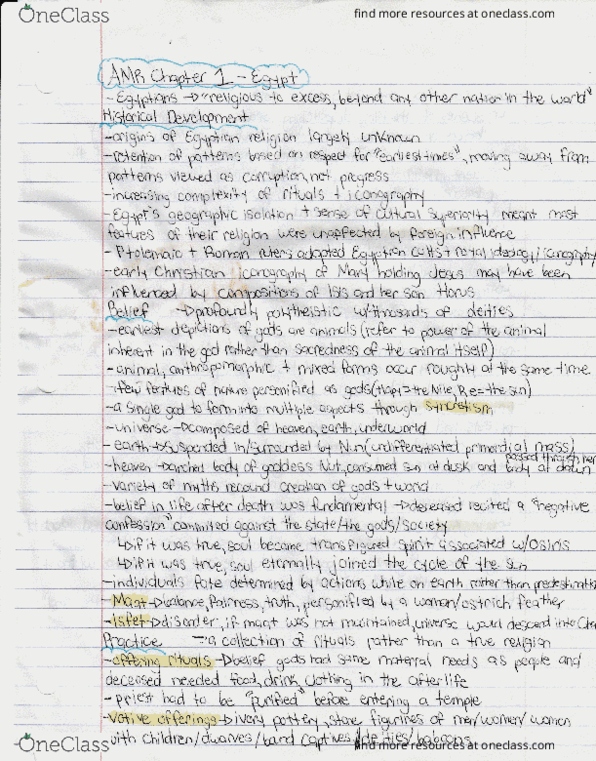 OneClass
find more resources at oneclass.com
AMR Chapter 1 - Egypt
- Egyptians → "religious to excess, beyond any other nation in the world"
Historical Development
- origins of Egyptian religion largely unknown
- retention of patterns based on respect for "earliest times", moving away from
patterns viewed as corruption, not progress
- increasing complexity of rituals + iconography
- Egypt's geographic isolation + sense of cultural superiority meant most
features of their religion were unaffected by foreign influence
- Ptolemaic + Roman rulers adopted Egyptian cults + royal ideology/iconography
- early Christian iconography of Mary holding Jesus may have been
influenced by compositions of Isis and her son Horus
Belief → profoundly polytheistic w/thousands of deities
- earliest depictions of gods are animals (refer to power of the animal
inherent in the god rather than sacredness of the animal itself)
- animal, anthropomorphic + mixed forms occur roughly at the same time
- few features of nature personified as gods (Hapi = the Nile, Re = the sun)
- a single god to form into multiple aspects through syncretism
- universe → composed of heaven, earth, underworld
- earth → suspended in/surrounded by Nun (undifferentiated primordial mass)
- heaven → arched body of goddess Nut, consumed sun at dusk and passed through her body at dawn
- variety of myths recound creation of gods + world
- belief in life after death was fundamental → deceased recited a "negative
confession" commited against the state/the gods/society
↳ if it was true, soul became transfigured spirit associated w/Osiris
↳ if it was true, soul eternally joined the cycle of the sun
- individuals fate determined by actions while on earth rather than
- Maat → balance, fairness, truth, personified by a woman/ostrich feather
- isfet → disorder, if maat was not maintained, universe would descend into
Practice → a collection of rituals rather than a true religion
- offering rituals → belief gods had same material needs as people and
deceased needed food, drink, clothing in the afterlife
- priest had to be "purified" before entering a temple
- votive offerings → ivory, pottery, stone figurines of men/women/women
with children/dwarves/bound captives/deities/baboons
OneClass
find more resources at oneclass.com